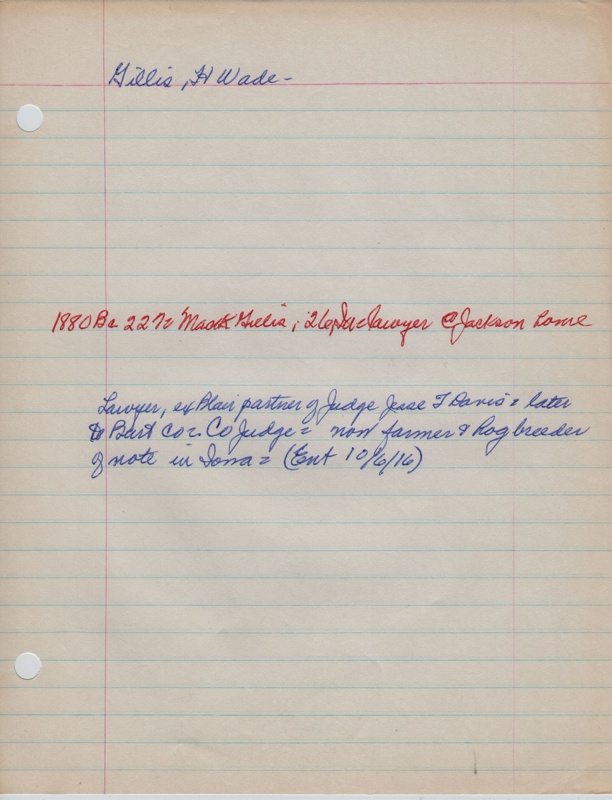 Gillis, H Wade -
1880 Bc 227= Mack Gillis, 26, = lawyer @ Jackson home
Lawyer, ex Blair partner of Judge Jesse T Davis = later
to Burt Co = Co Judge = now farmer & hog breeder
of note in Iowa = (Ent 10/6/16)